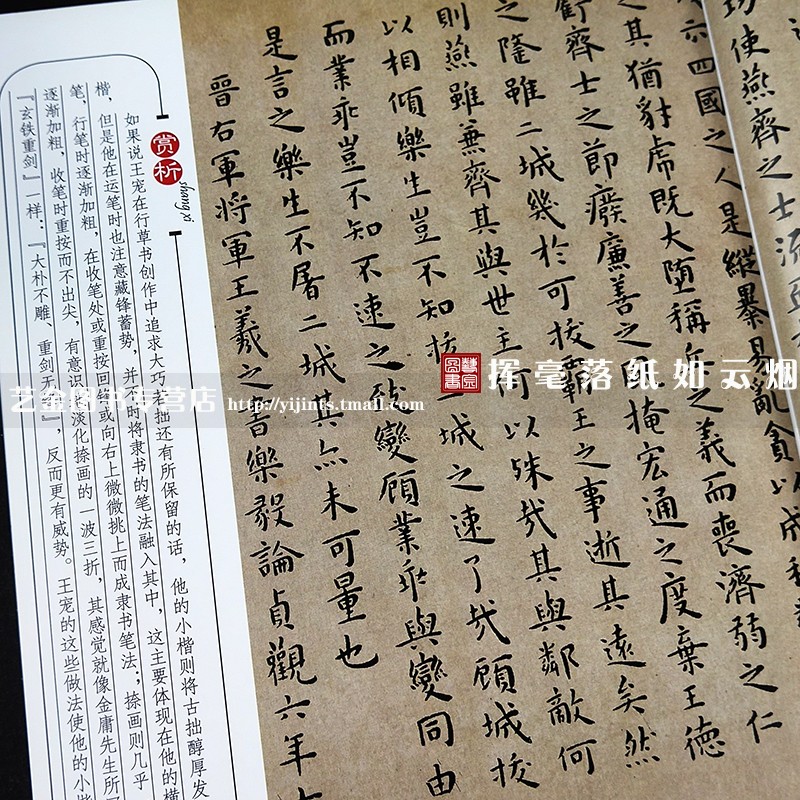 功使燕齊之士流血
六四國之人是縱暴易亂貪以成私
之其猶豺虎既大堕稱兵之義而喪濟弱之仁
虧齊士之節癈廉善之風掩宏通之度棄王德
之隆雖二城幾於可拔霸王之事逝其遠矣然
則燕雖兼齊其與世主何以殊哉其與鄰敵何
以相傾樂生豈不知拔二城之速了哉顧城拔
而業乖豈不知不速之致變顧業乖與變同由
是言之樂生不屠二城其亦未可量也
晉右軍將軍王羲之書樂毅論貞觀六年
赏析
shang xi
如果说王宠在行草书创作中追求大巧若拙还有所保留的话，他的小楷则将古拙醇厚发
楷，但是他在运笔时也注意藏锋蓄势，并同时将隶书的笔法融入其中，这主要体现在他的横
笔，行笔时逐渐加粗，在收笔处或重按回锋或向右上微微挑上而成隶书笔法；捺画则几乎
逐渐加粗，收笔时重按而不出尖，有意识地淡化捺画的一波三折，其感觉就像金庸先生所
『玄铁重剑』一样：『大朴不雕、重剑无锋』，反而更有威势。王宠的这些做法使他的小楷
挥毫落纸如云烟
艺金图书专营店 http://yijints.tmall.com/